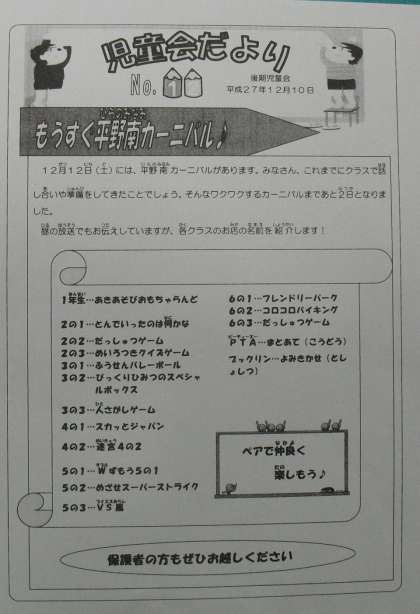 児童会だより
No. 1
後期児童会
平成27年12月10日
もうすぐ平野南カーニバル♪
12月12日(土)には、平野南カーニバルがあります。みなさん、これまでにクラスで話
し合いや準備をしてきたことでしょう。そんなワクワクするカーニバルまであと2日となりま
した。
昼の放送でもお伝えしていますが、各クラスのお店の名前を紹介します!
1年生…あきあそびおもちゃらんど
2の1…とんでいったのは何かな
2の2…だっしゅつゲーム
2の3…めいろつきクイズゲーム
3の1…ふうせんバレーボール
3の2…びっくりひみつのスペシャ
ルボックス
3の3…人さがしゲーム
4の1…スカッとジャパン
4の2…迷宮4の2
5の1…Wずもう5の1
5の2…めざせスーパーストライク
5の3…VS嵐
6の1…フレンドリーパーク
6の2…コロコロバイキング
6の3…だっしゅつゲーム
PTA…まとあて(こうどう)
ブックリン…よみきかせ(としょ
しつ)
ペアで仲良く
楽しもう♪
保護者の方もぜひお越しください